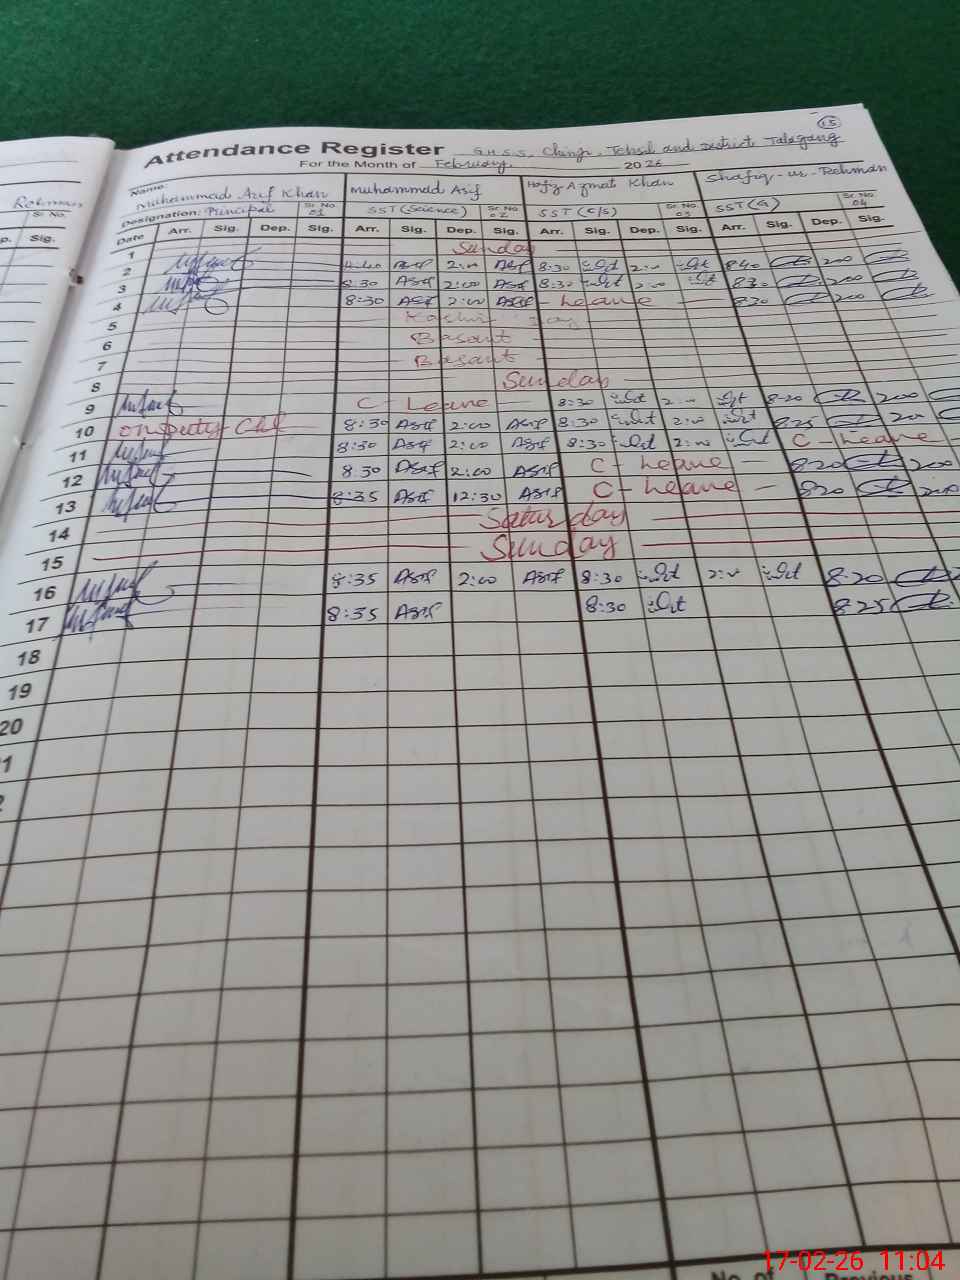 15
Attendance Register G.H.S.S, Chinji, Tehsil and District Talagang
For the Month of February. 2026
Rehman
Sr. No.
p. Sig.
Name: Muhammad Arif Khan Muhammad Asif Hafiz Azmat Khan Shafiq-ur-Rehman
Designation: Principal Sr. No 01 SST (Science) Sr. No 02 SST (C/S) Sr. No 03 SST (G) Sr. No 04
Date Arr. Sig. Dep. Sig. Arr. Sig. Dep. Sig. Arr. Sig. Dep. Sig. Arr. Sig. Dep. Sig.
1 Sunday
2 Asif 2:00 Asif 8:30 2:00 840 200
3 8:30 Asif 2:00 Asif 8:30 2:00 830 200
4 8:30 Asif 2:00 Asif - Leave 830 200
5 Kashmir Day
6 Basant
7 Basant
8 Sunday
9 C - Leave 8:30 2:00 8-20 200
10 8:30 Asif 2:00 Asif 8:30 2:00 825 200
11 8:30 Asif 2:00 Asif 8:30 2:00 C - Leave
12 8:30 Asif 2:00 Asif C - Leave 820 200
13 8:35 Asif 12:30 Asif C - Leave 820 200
14 Saturday
15 Sunday
16 8:35 Asif 2:00 Asif 8:30 2:00 8-20
17 8:35 Asif 8:30 8-25
18
19
20
1
2
No. of Previous
17-02-26 11:04